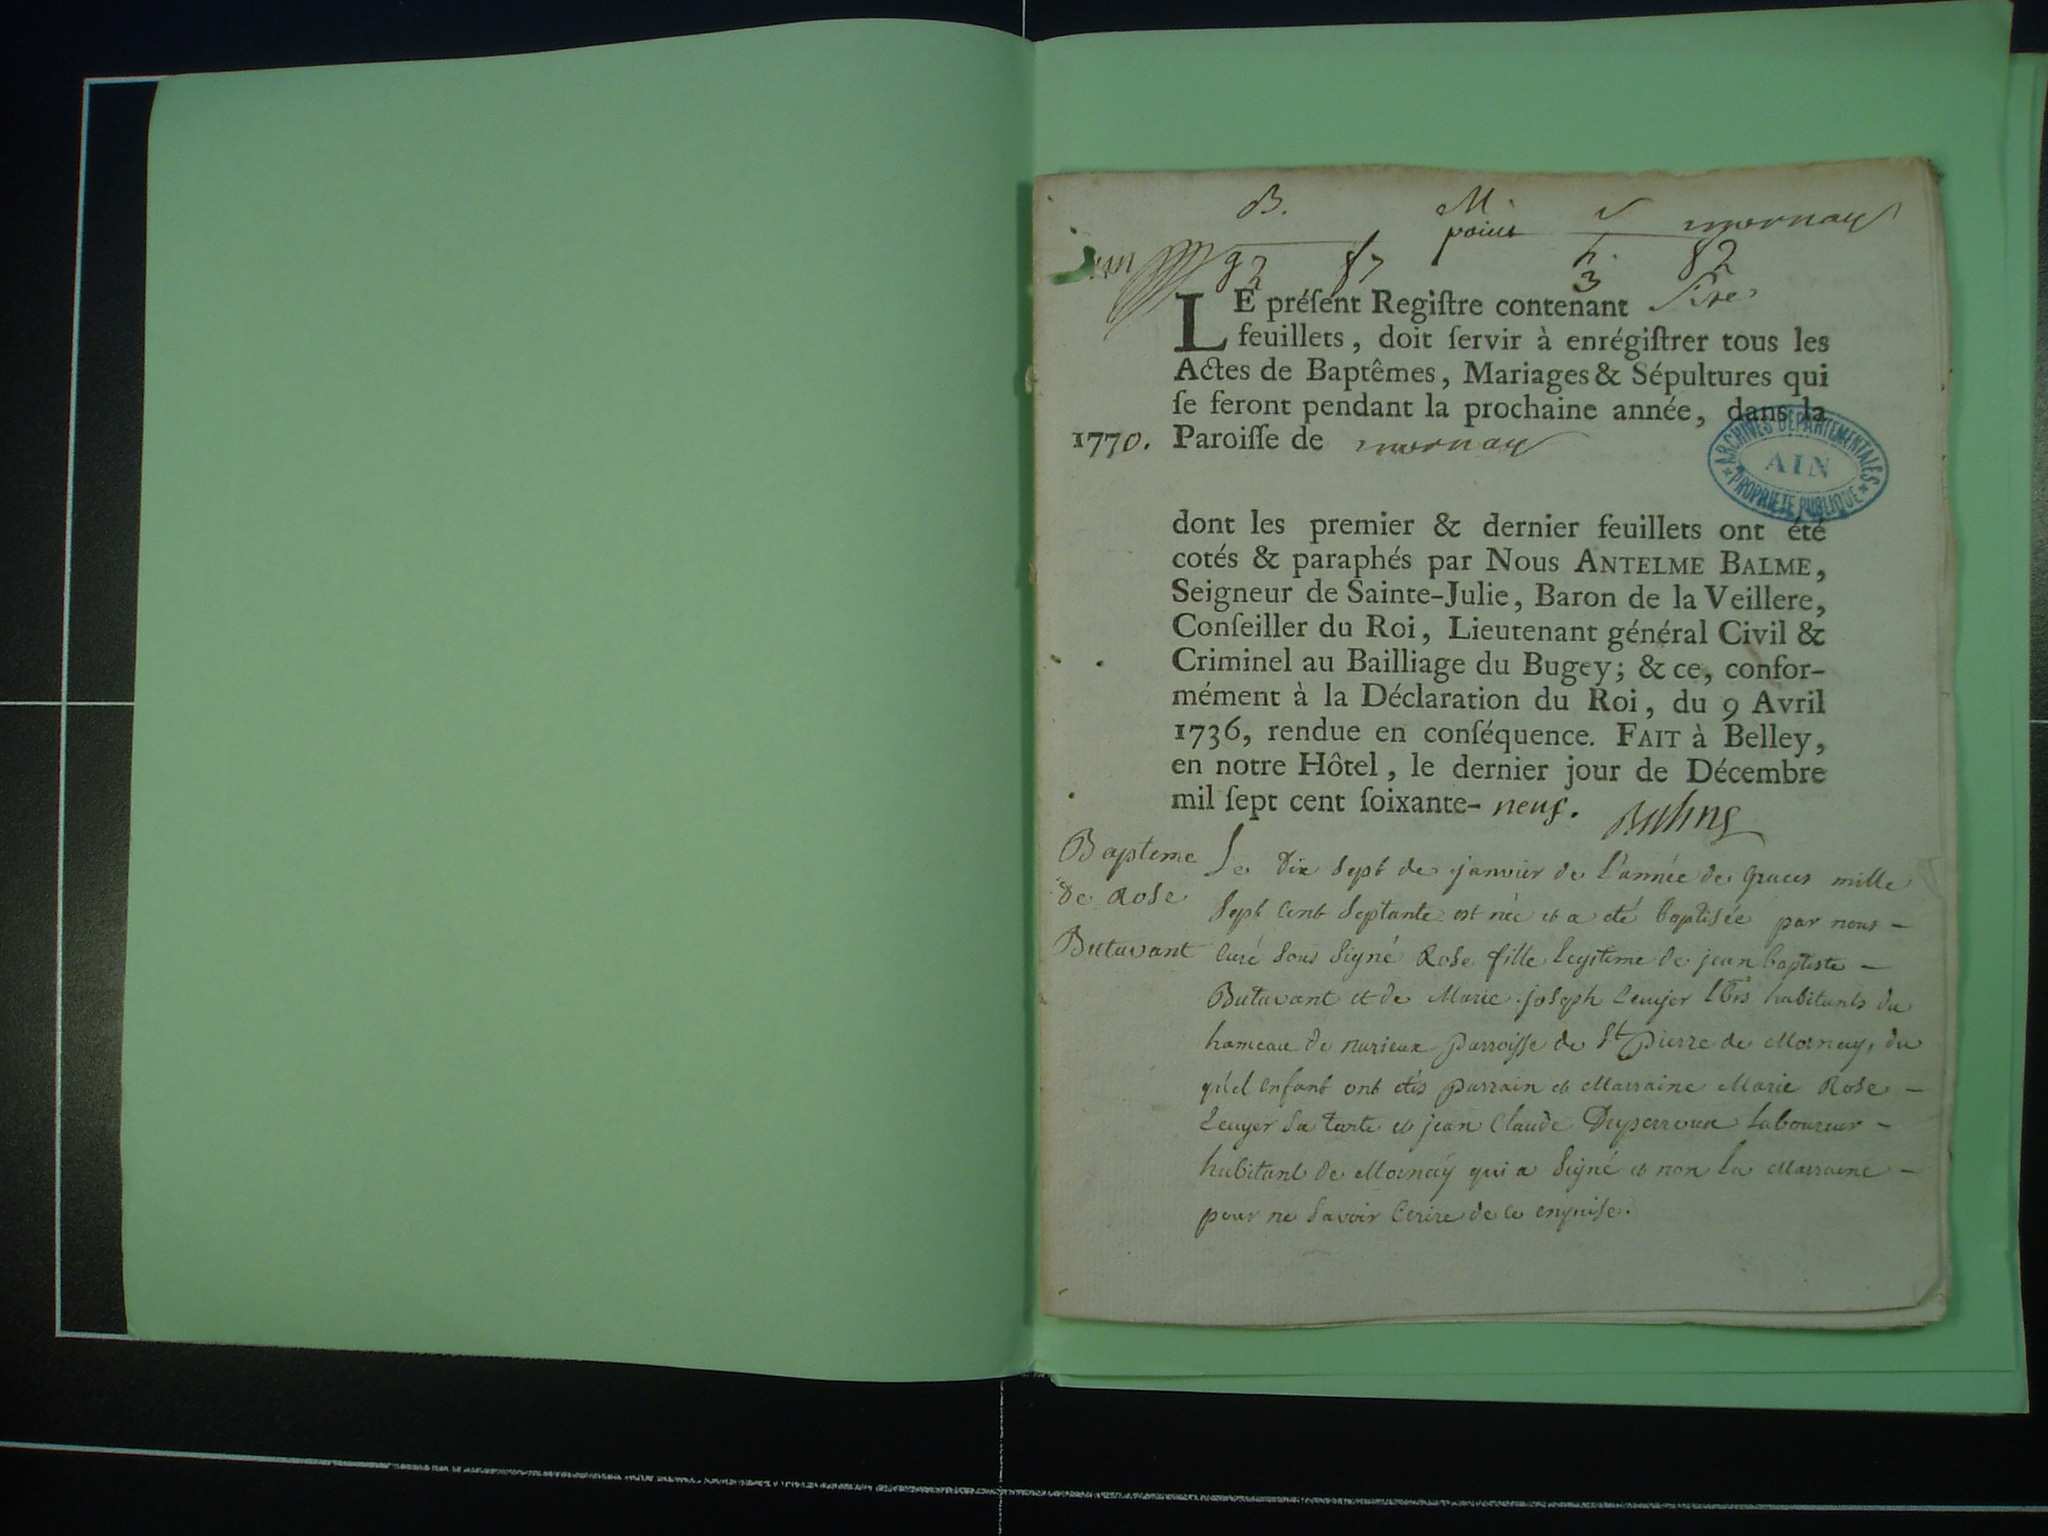 B. M. mornay
point
g 2 f 7 h. 3 f 2
LE préſent Regiſtre contenant Six
feuillets, doit ſervir à enrégiſtrer tous les
Actes de Baptêmes, Mariages & Sépultures qui
ſe feront pendant la prochaine année, dans la
1770. Paroiſſe de mornay
ARCHIVES DEPARTEMENTALES
AIN
PROPRIETE PUBLIQUE
dont les premier & dernier feuillets ont été
cotés & paraphés par Nous ANTELME BALME,
Seigneur de Sainte-Julie, Baron de la Veillere,
Conſeiller du Roi, Lieutenant général Civil &
Criminel au Bailliage du Bugey; & ce, confor-
mément à la Déclaration du Roi, du 9 Avril
1736, rendue en conſéquence. FAIT à Belley,
en notre Hôtel, le dernier jour de Décembre
mil ſept cent ſoixante-neuf. Balme
Bapteme
de Rose
Butavant
Le dix sept de janvier de l'année de graces mille
sept cent septante est née et a été baptisée par nous -
curé sous signé Rose fille legitime de jean baptiste -
Butavant et de Marie joseph Lecuyer habitants du
hameau de nurieux parroisse de St pierre de Mornay, du
qu'el enfant ont étés parrain et Marraine Marie Rose -
Lecuyer sa tante et jean Claude Duperroux Laboureur -
habitant de Mornay qui a signé et non la Marraine -
pour ne savoir écrire de ce enquise.